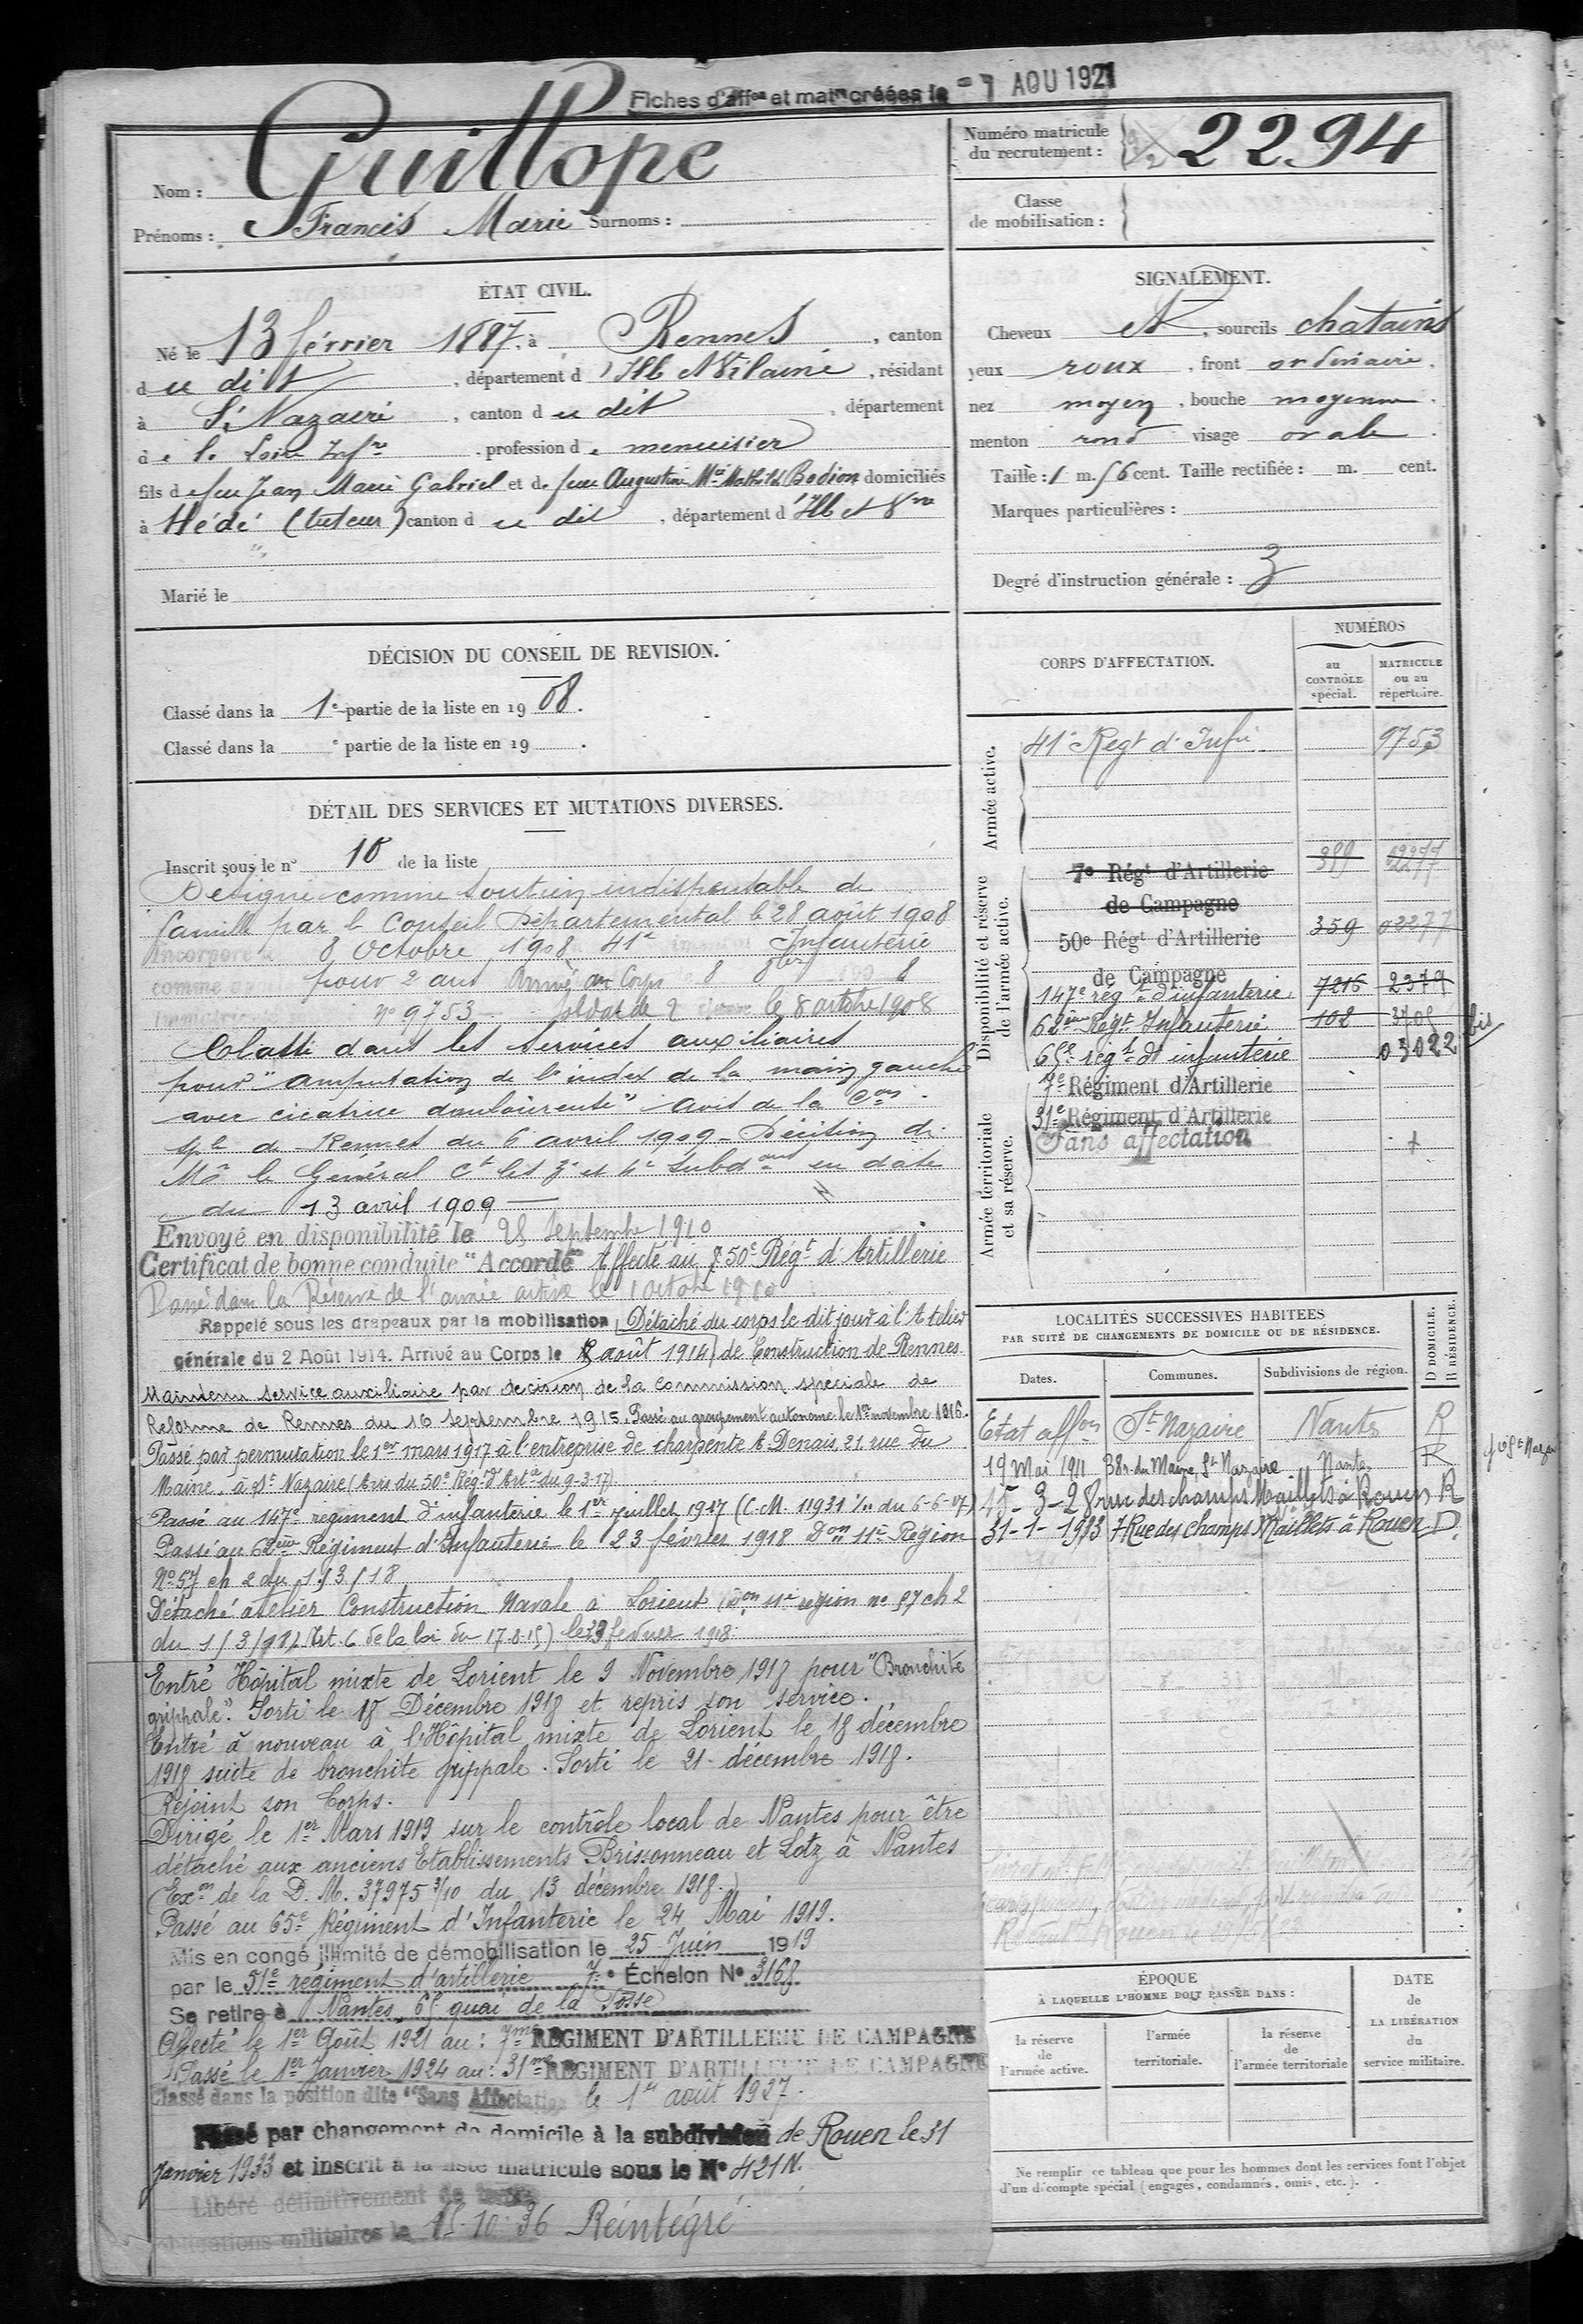 Fiches d'affon et matn créées le - 1 AOU 1921
Nom : Guillope
Prénoms : Francis Marie Surnoms :
Numéro matricule
du recrutement : 2294
Classe
de mobilisation :
ÉTAT CIVIL.
Né le 13 février 1887, à Rennes, canton
du dit, département d'Ille et Vilaine, résidant
à St Nazaire, canton du dit, département
de la Loire Infre, profession de menuisier
fils de feu Jean Marie Gabriel et de feue Augustine Mie Mathilde Bodion domiciliés
à Hédé (tuteur) canton du dit, département d'Ille et Vne
Marié le
SIGNALEMENT.
Cheveux et, sourcils chatains
yeux roux, front ordinaire,
nez moyen, bouche moyenne,
menton rond visage ovale.
Taille : 1 m. 56 cent. Taille rectifiée : m. cent.
Marques particulières :
Degré d'instruction générale : 3
DÉCISION DU CONSEIL DE REVISION.
Classé dans la 1e partie de la liste en 1908.
Classé dans la e partie de la liste en 19 .
DÉTAIL DES SERVICES ET MUTATIONS DIVERSES.
Inscrit sous le no 10 de la liste
Désigné comme soutien indispensable de
famille par le Conseil Départemental le 28 août 1908
Incorporé le 8 Octobre 1908 41e Infanterie
pour 2 ans Arrivé au Corps 8 8bre 190 8
no 9753 soldat de 2 classe le 8 octobre 1908
Classé dans les services auxiliaires
pour "amputation de l'index de la main gauche
avec cicatrice douloureuse" avis de la Con
sple de Rennes du 6 avril 1909 - Décision de
Mr le Général Ct les 3e et 4e subdons en date
du 13 avril 1909
Envoyé en disponibilité le 28 septembre 1910
Certificat de bonne conduite "Accordé" Affecté au 50e Régt d'Artillerie
Passé dans la Réserve de l'armée active le 1 octobre 1910
Rappelé sous les drapeaux par la mobilisation Détaché du corps le dit jour à l'Atelier
générale du 2 Août 1914. Arrivé au Corps le 3 août 1914 de Construction de Rennes
Maintenu service auxiliaire par décision de la commission spéciale de
Réforme de Rennes du 16 septembre 1915. Passé au groupement autonome le 1er novembre 1916.
Passé par permutation le 1er mars 1917 à l'entreprise de charpente A. Denais, 21 rue du
Maine, à St Nazaire (Avis du 50e Régt d'Artie du 9-3-17)
Passé au 147e régiment d'infanterie le 1er juillet 1917 (C.M. 11931 1/11 du 6-6-17)
Passé au 62ème Régiment d'Infanterie le 23 février 1918 Don 11e Région
No 57 ch 2 du 1/3/18
Détaché atelier Construction Navale à Lorient (Don 11e région no 57 ch 2
du 1/3/18) (Art. 6 de la loi du 17.8.15) le 23 février 1918.
Entré Hôpital mixte de Lorient le 9 Novembre 1918 pour "Bronchite
grippale". Sorti le 18 Décembre 1918 et repris son service.
Entré à nouveau à l'Hôpital mixte de Lorient le 18 décembre
1918 suite de bronchite grippale. Sorti le 21 décembre 1918.
Rejoint son Corps.
Dirigé le 1er Mars 1919 sur le contrôle local de Nantes pour être
détaché aux anciens Etablissements Brissonneau et Lotz à Nantes
(Exon de la D.M. 37975 3/10 du 13 décembre 1918.)
Passé au 65e Régiment d'Infanterie le 24 Mai 1919.
Mis en congé illimité de démobilisation le 25 Juin 1919
par le 51e régiment d'artillerie 7e Échelon No 3168
Se retire à Nantes, 65 quai de la Fosse
Affecté le 1er Août 1921 au : 7me REGIMENT D'ARTILLERIE DE CAMPAGNE
Passé le 1er Janvier 1924 au : 31me REGIMENT D'ARTILLERIE DE CAMPAGNE
Classé dans la position dite "Sans Affectation le 1er août 1927.
Passé par changement de domicile à la subdivision de Rouen le 31
Janvier 1933 et inscrit à la liste matricule sous le No 421 N.
Libéré définitivement de toutes
obligations militaires le 15-10-36 Réintégré
CORPS D'AFFECTATION.
NUMÉROS
au
CONTRÔLE
spécial.
MATRICULE
ou au
répertoire.
Armée active.
41e Regt d'Infie 9753
Disponibilité et réserve
de l'armée active.
7e Régt d'Artillerie 389 02277
de Campagne
50e Régt d'Artillerie 359 02277
de Campagne
147e régt d'infanterie 7216 2379
62ème Régt Infanterie 102 3705 bis
65e régt d'infanterie 03022
Armée territoriale
et sa réserve.
7e Régiment d'Artillerie
31e Régiment d'Artillerie
Sans affectation +
LOCALITÉS SUCCESSIVES HABITÉES
PAR SUITE DE CHANGEMENTS DE DOMICILE OU DE RÉSIDENCE.
D DOMICILE.
R RÉSIDENCE.
Dates. Communes. Subdivisions de région.
Etat affon St Nazaire Nantes R
19 Mai 1911 38 r. du Maine, St Nazaire Nantes R
15-3-28 rue des champs Maillets à Rouen R
31-1-1933 7 Rue des champs Maillets à Rouen D.
ÉPOQUE
À LAQUELLE L'HOMME DOIT PASSER DANS :
la réserve
de
l'armée active.
l'armée
territoriale.
la réserve
de
l'armée territoriale
DATE
de
LA LIBÉRATION
du
service militaire.
Ne remplir ce tableau que pour les hommes dont les services font l'objet
d'un décompte spécial (engagés, condamnés, omis, etc.).